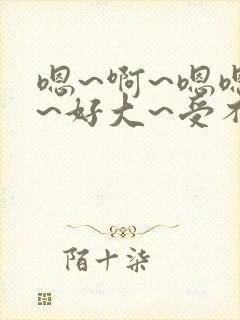 嗯~啊~嗯嗯
~好大~受不
陌十柒